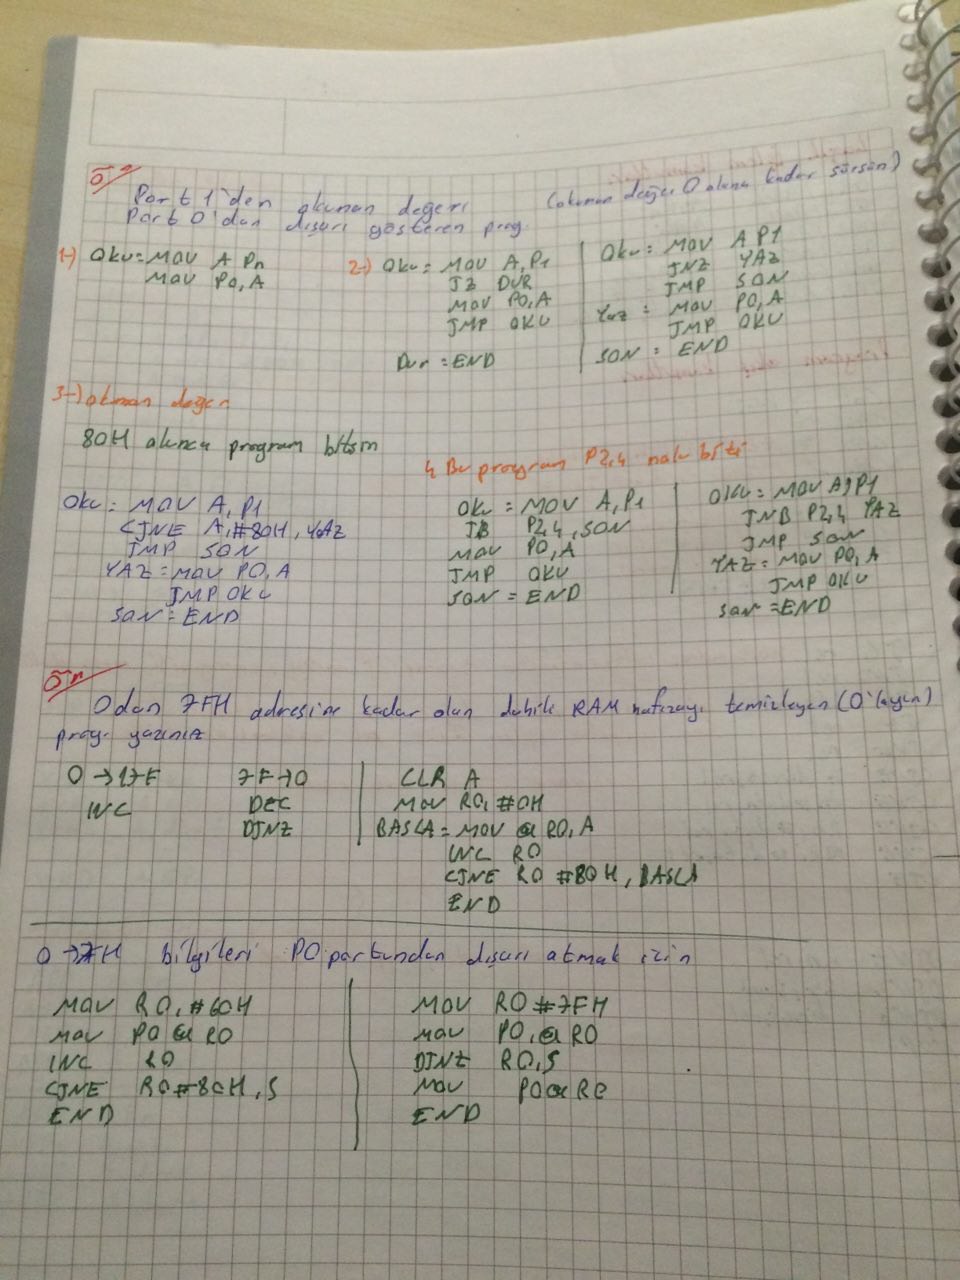 Ör
Port 1'den okunan değeri (okunan değer 0 olana kadar sürsün)
Port 0'dan dışarı gösteren prog.
1-) Oku = MOV A Pn
MOV P0, A
2-) Oku = MOV A, P1
JZ DUR
MOV P0, A
JMP OKU
Dur = END
Oku = MOV A P1
JNZ YAZ
JMP SON
Yaz = MOV P0, A
JMP OKU
SON = END
3-) okunan değer
80H olunca program bitsin
Oku = MOV A, P1
CJNE A, #80H, YAZ
JMP SON
YAZ = MOV P0, A
JMP OKU
SON = END
4 Bu program P2,4
Oku = MOV A, P1
JB P2,4, SON
MOV P0, A
JMP OKU
SON = END
OKU = MOV A, P1
JNB P2,4 YAZ
JMP SON
YAZ = MOV P0, A
JMP OKU
SON = END
Ör
0dan 7FH adresine kadar olan dahili RAM hafızayı temizleyen (0'layan)
prog. yazınız
0 → 17F
INC
7F → 0
DEC
DJNZ
CLR A
MOV R0, #0H
BASLA = MOV @ R0, A
INC R0
CJNE R0 #80H, BASLA
END
0 → 7FH bilgileri P0 portundan dışarı atmak için
MOV R0, #60H
MOV P0 @ R0
INC R0
CJNE R0 #80H, S
END
MOV R0 #7FH
MOV P0, @ R0
DJNZ R0, S
MOV P0 @ R0
END